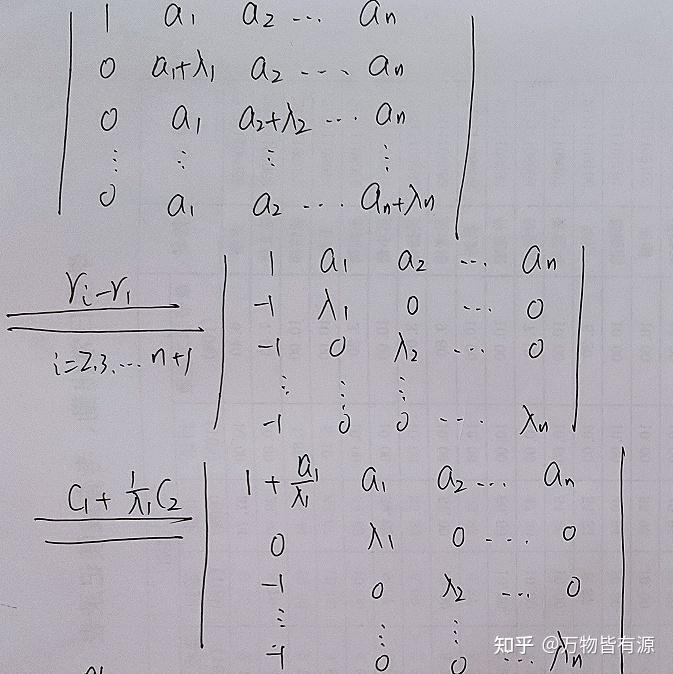 1 a₁ a₂ ... aₙ
0 a₁+λ₁ a₂ ... aₙ
0 a₁ a₂+λ₂ ... aₙ
⋮ ⋮ ⋮ ⋮
0 a₁ a₂ ... aₙ+λₙ
rᵢ-r₁
i=2,3,...n+1
1 a₁ a₂ ... aₙ
-1 λ₁ 0 ... 0
-1 0 λ₂ ... 0
⋮ ⋮ ⋮
-1 0 0 ... λₙ
C₁+1/λ₁C₂
1+a₁/λ₁ a₁ a₂ ... aₙ
0 λ₁ 0 ... 0
-1 0 λ₂ ... 0
⋮ ⋮ ⋮
-1 0 0 ... λₙ
知乎 @万物皆有源